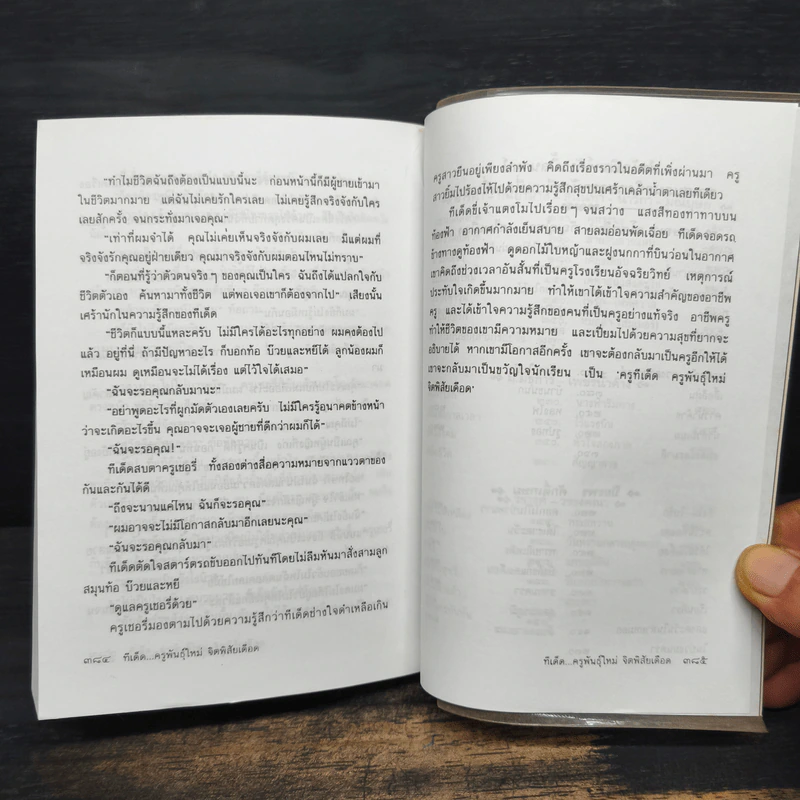 "ทำไมชีวิตฉันถึงต้องเป็นแบบนี้นะ ก่อนหน้านี้ก็มีผู้ชายเข้ามา
ในชีวิตมากมาย แต่ฉันไม่เคยรักใครเลย ไม่เคยรู้สึกจริงจังกับใคร
เลยสักครั้ง จนกระทั่งมาเจอคุณ"
"เท่าที่ผมจำได้ คุณไม่เคยเห็นจริงจังกับผมเลย มีแต่ผมที่
จริงจังรักคุณอยู่ฝ่ายเดียว คุณมาจริงจังกับผมตอนไหนไม่ทราบ"
"ก็ตอนที่รู้ว่าตัวตนจริงๆ ของคุณเป็นใคร ฉันถึงได้แปลกใจกับ
ชีวิตตัวเอง ค้นหามาทั้งชีวิต แต่พอเจอเขาก็ต้องจากไป" เสียงนั้น
เศร้านักในความรู้สึกของทีเด็ด
"ชีวิตก็แบบนี้แหละครับ ไม่มีใครได้อะไรทุกอย่าง ผมคงต้องไป
แล้ว อยู่ที่นี่ ถ้ามีปัญหาอะไร ก็บอกท้อ บ๊วยและหยีได้ ลูกน้องผมก็
เหมือนผม ดูเหมือนจะไม่ได้เรื่อง แต่ไว้ใจได้เสมอ"
"ฉันจะรอคุณกลับมานะ"
"อย่าพูดอะไรที่ผูกมัดตัวเองเลยครับ ไม่มีใครรู้อนาคตข้างหน้า
ว่าจะเกิดอะไรขึ้น คุณอาจจะเจอผู้ชายที่ดีกว่าผมก็ได้"
"ฉันจะรอคุณ!"
ทีเด็ดสบตาครูเชอรี่ ทั้งสองต่างสื่อความหมายจากแววตาของ
กันและกันได้ดี
"ถึงจะนานแค่ไหน ฉันก็จะรอคุณ"
"ผมอาจจะไม่มีโอกาสกลับมาอีกเลยนะคุณ"
"ฉันจะรอคุณกลับมา"
ทีเด็ดตัดใจสตาร์ตรถขับออกไปทันทีโดยไม่ลืมหันมาสั่งสามลูก
สมุนท้อ บ๊วยและหยี
"ดูแลครูเชอรี่ด้วย"
ครูเชอรี่มองตามไปด้วยความรู้สึกว่าทีเด็ดช่างใจดำเหลือเกิน
๓๘๔ ทีเด็ด...ครูพันธุ์ใหม่ จิตพิสัยเดือด
ครูสาวยืนอยู่เพียงลำพัง คิดถึงเรื่องราวในอดีตที่เพิ่งผ่านมา ครู
สาวยิ้มไปร้องไห้ไปด้วยความรู้สึกสุขปนเศร้าเคล้าน้ำตาเลยทีเดียว
ทีเด็ดขี่เจ้าแตงโมไปเรื่อยๆ จนสว่าง แสงสีทองทาทาบบน
ท้องฟ้า อากาศกำลังเย็นสบาย สายลมอ่อนพัดเฉื่อย ทีเด็ดจอดรถ
ข้างทางดูท้องฟ้า ดูดอกไม้ใบหญ้าและฝูงนกกาที่บินว่อนในอากาศ
เขาคิดถึงช่วงเวลาอันสั้นที่เป็นครูโรงเรียนอัจฉริยวิทย์ เหตุการณ์
ประทับใจเกิดขึ้นมากมาย ทำให้เขาได้เข้าใจความสำคัญของอาชีพ
ครู และได้เข้าใจความรู้สึกของคนที่เป็นครูอย่างแท้จริง อาชีพครู
ทำให้ชีวิตของเขามีความหมาย และเปี่ยมไปด้วยความสุขที่ยากจะ
อธิบายได้ หากเขามีโอกาสอีกครั้ง เขาจะต้องกลับมาเป็นครูอีกให้ได้
เขาจะกลับมาเป็นขวัญใจนักเรียน เป็น 'ครูทีเด็ด ครูพันธุ์ใหม่
จิตพิสัยเดือด'
ทีเด็ด...ครูพันธุ์ใหม่ จิตพิสัยเดือด ๓๘๕